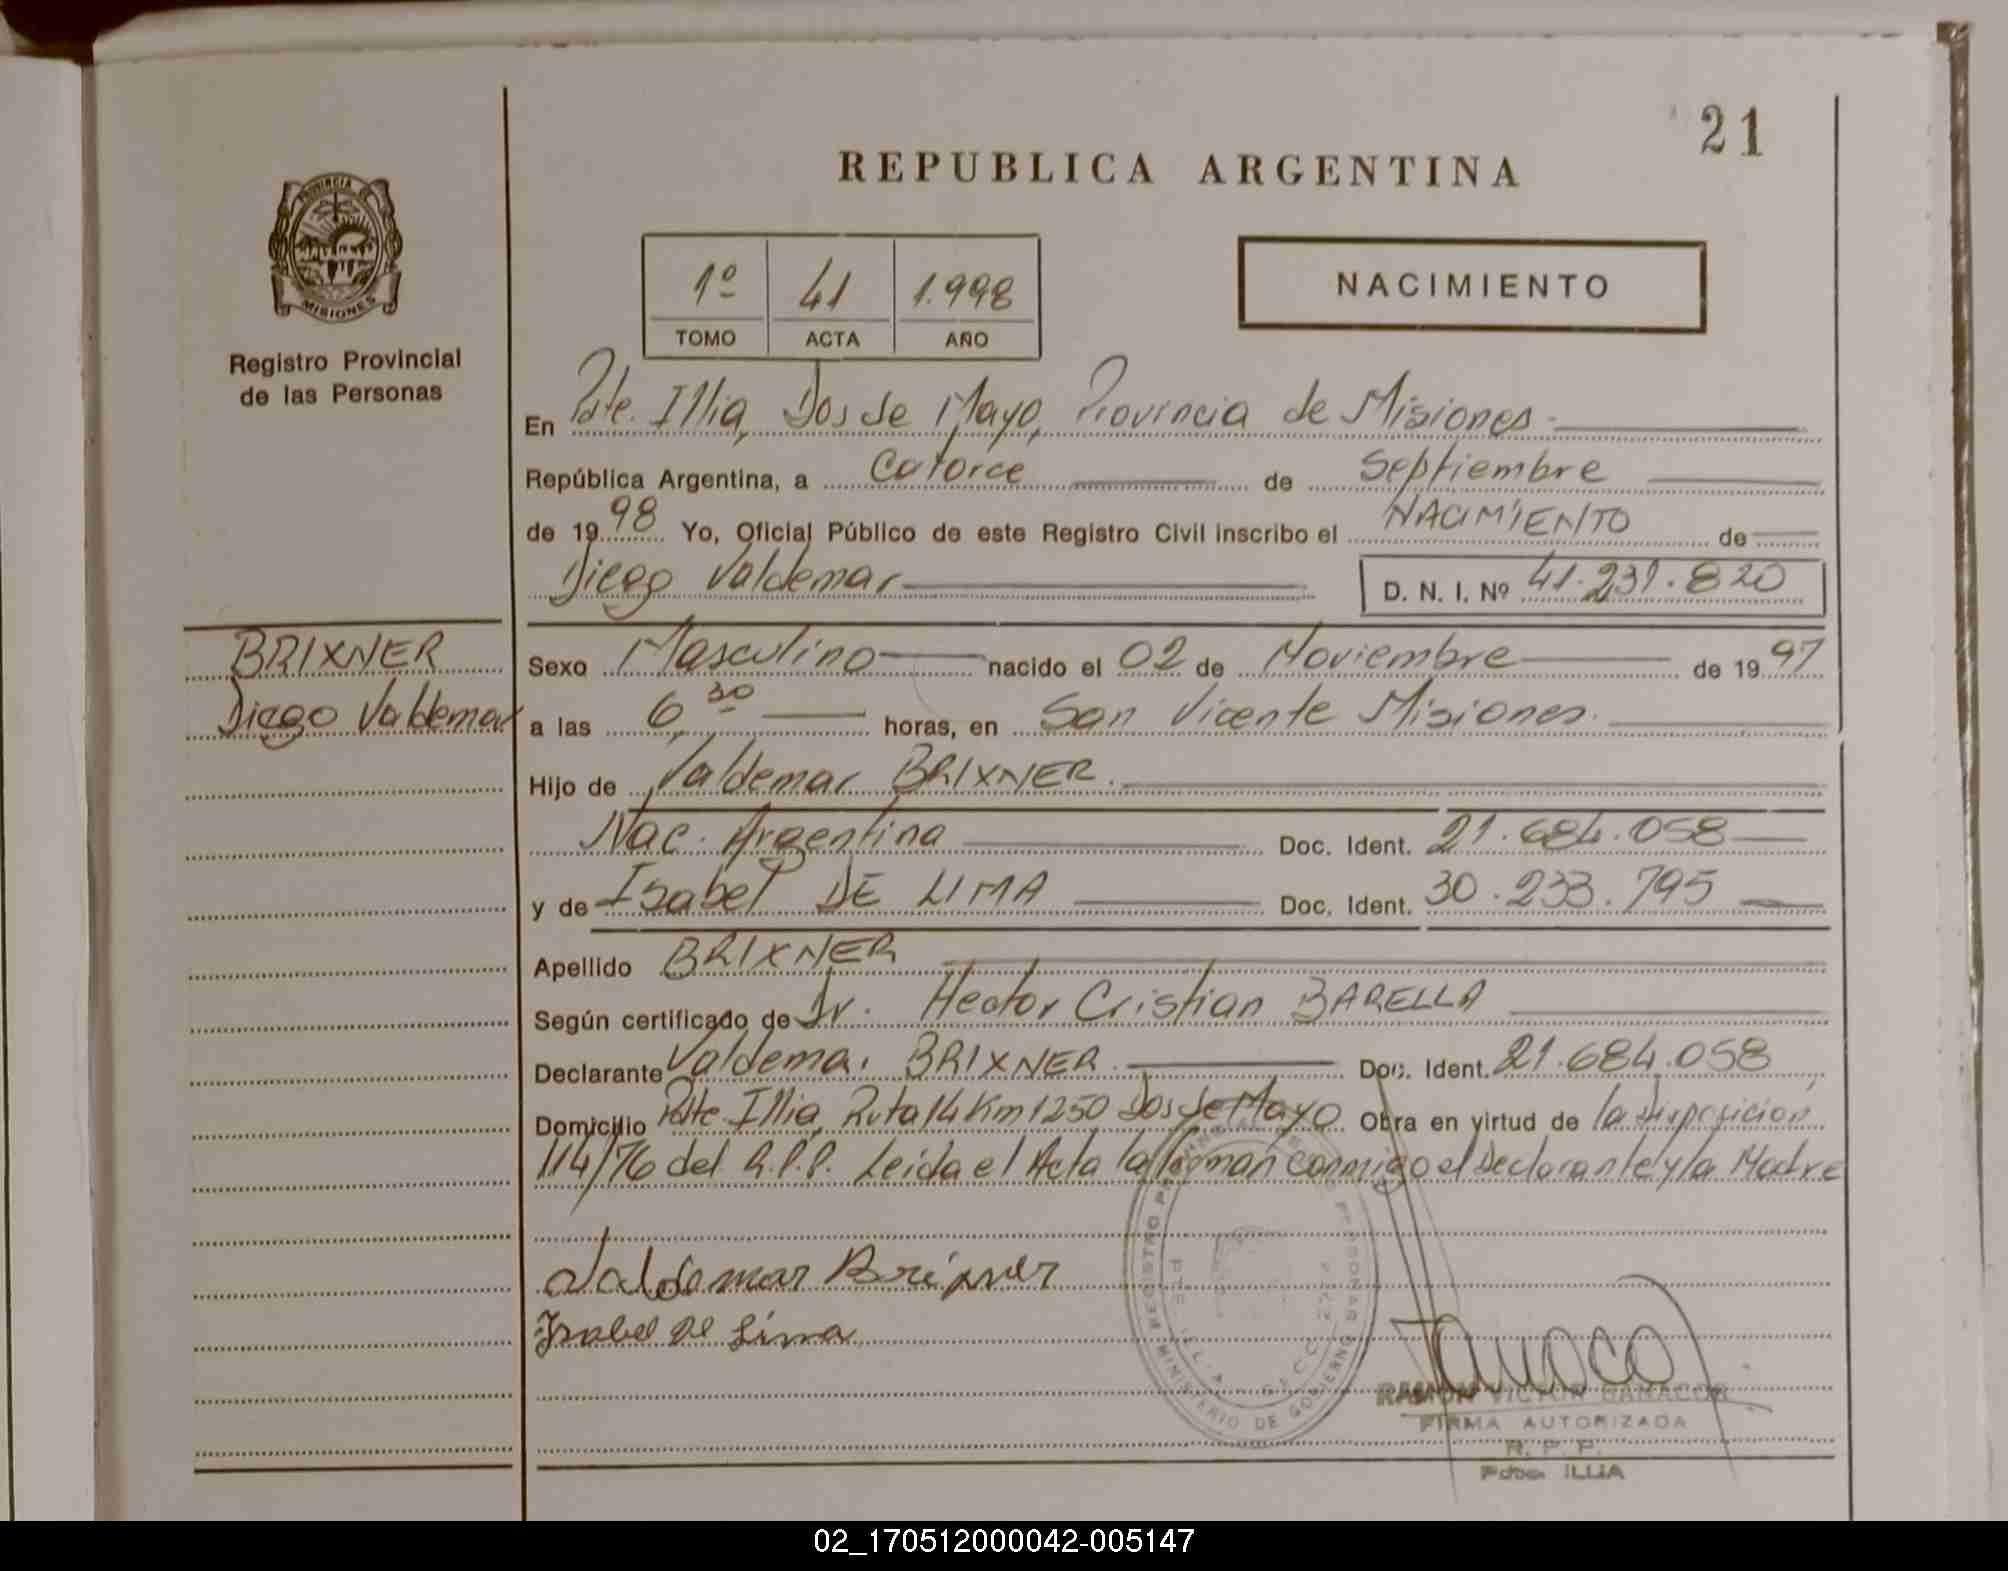 21
REPUBLICA ARGENTINA
PROVINCIA DE
MISIONES
Registro Provincial
de las Personas
1º 41 1.998
TOMO ACTA AÑO
NACIMIENTO
En Pdte. Illia, Dos de Mayo, Provincia de Misiones.
República Argentina, a Catorce de Septiembre
de 1998 Yo, Oficial Público de este Registro Civil inscribo el NACIMIENTO de
Diego Valdemar D. N. I. Nº 41.231.820
BRIXNER
Diego Valdemar
Sexo Masculino nacido el 02 de Noviembre de 1997
a las 6,30 horas, en San Vicente Misiones.
Hijo de Valdemar BRIXNER.
Nac. Argentina Doc. Ident. 21.684.058
y de Isabel DE LIMA Doc. Ident. 30.233.795
Apellido BRIXNER
Según certificado de Dr. Hector Cristian BARELLA
Declarante Valdemar BRIXNER Doc. Ident. 21.684.058
Domicilio Pdte. Illia, Ruta 14 Km 1250 Dos de Mayo Obra en virtud de la Disposición
114/76 del R.P.P. Leida el Acta la firman conmigo el Declarante y la Madre
Valdemar Brixner
Isabel De Lima
REGISTRO PERSONAS
MINISTERIO DE GOBIERNO
RAMON VICTOR
FIRMA AUTORIZADA
R. P. P.
Pdte. ILLIA
02_170512000042-005147